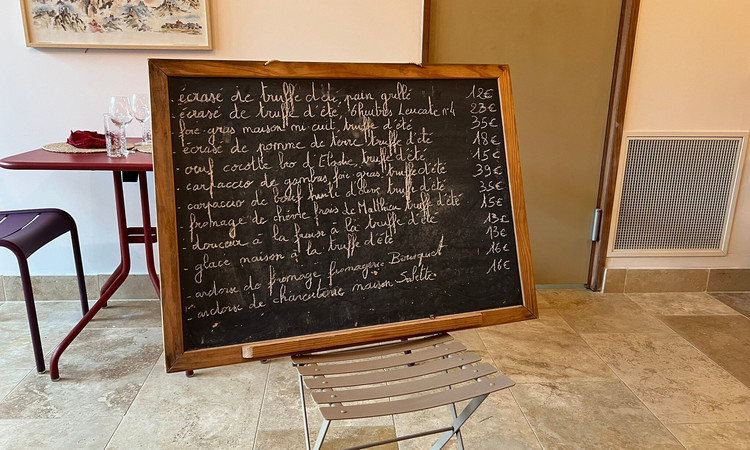 . écrasé de truffe d'été, pain grillé 12€
. écrasé de truffe d'été, 6 huîtres Leucate n°4 23€
foie gras maison mi cuit, truffe d'été 35€
. écrasé de pomme de terre truffe d'été 18€
- oeuf cocotte bio d'Elodie, truffe d'été 15€
- carpaccio de gambas, foie gras, truffe d'été 39€
- carpaccio de boeuf, huile d'olive, truffe d'été 35€
- fromage de chèvre frais de Matthieu, truffe d'été 15€
- douceur à la fraise à la truffe d'été 13€
- glace maison à la truffe d'été 13€
- ardoise de fromage fromagerie 16€
- ardoise de charcuterie maison 16€